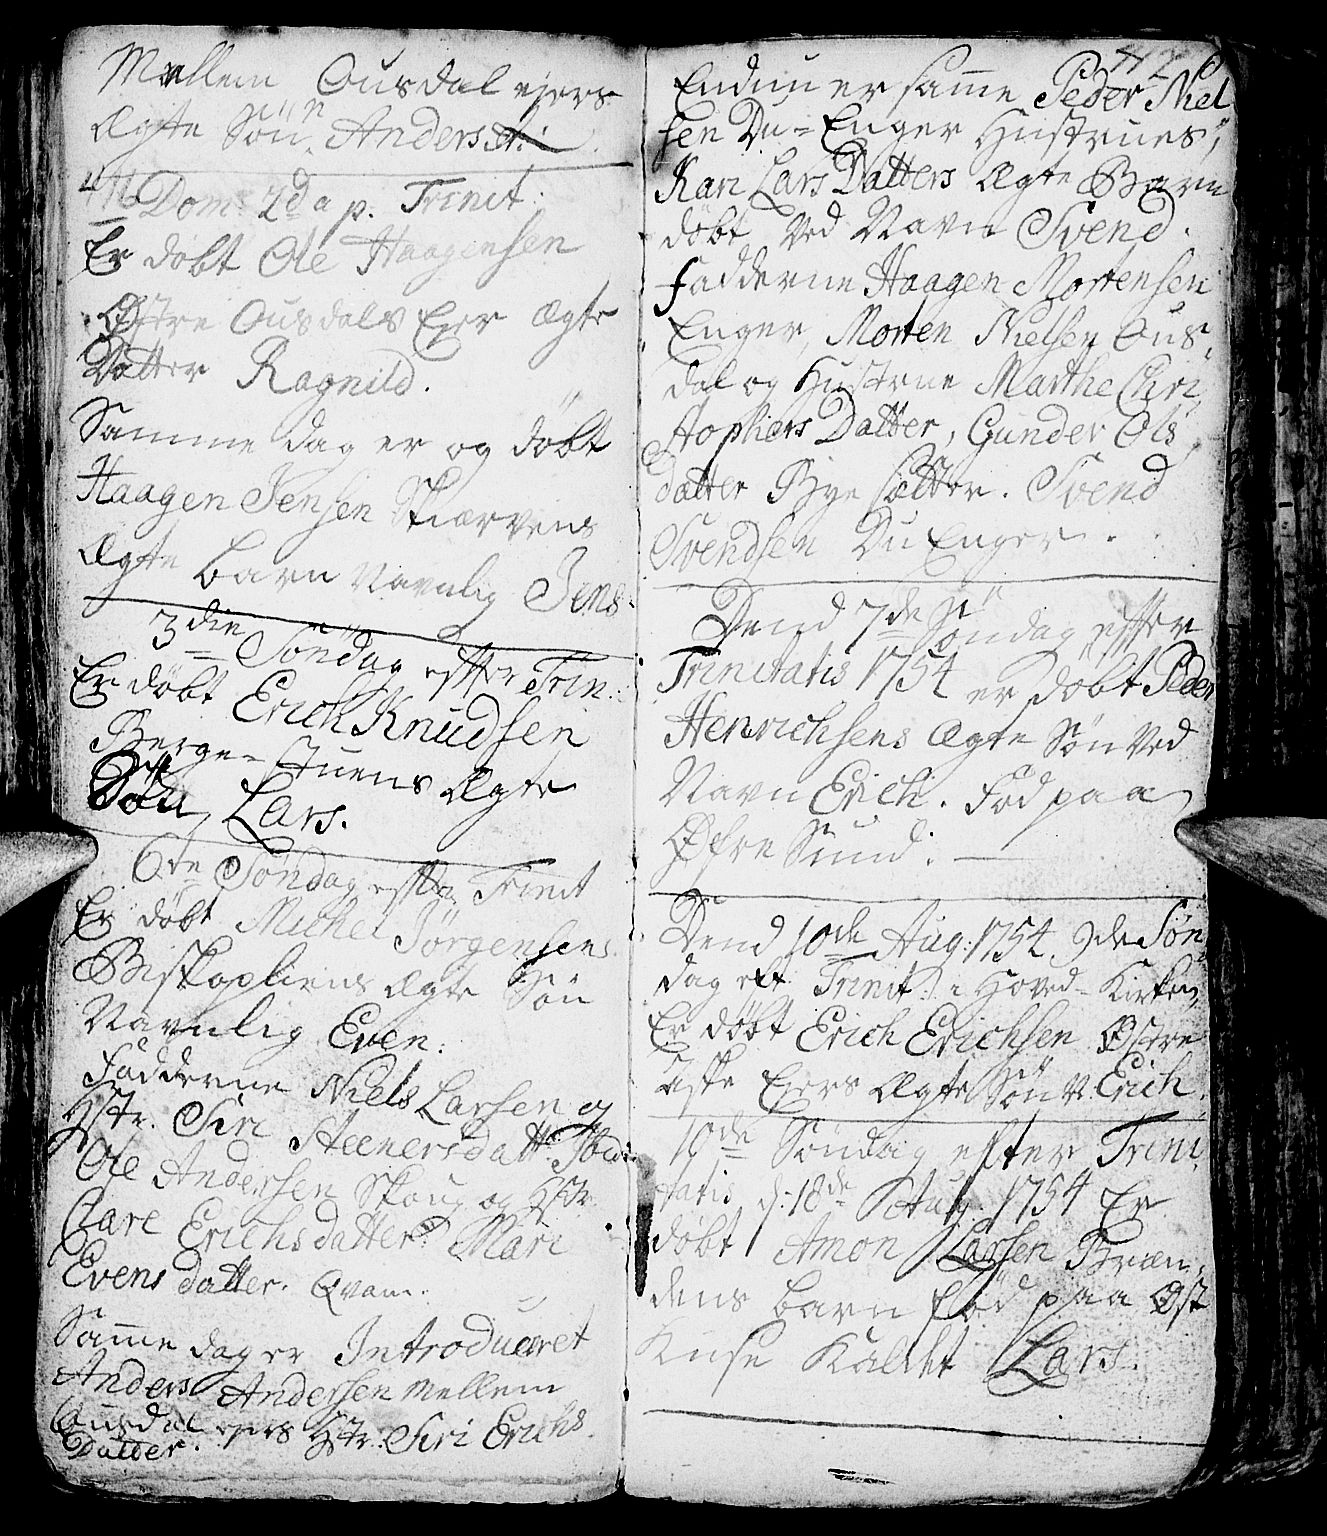 Mellem Ousdal ejers
Ægte Søn, Anders
Dom: 2da p. Trinit:
Er døbt Ole Haagensen
Østre Ousdals Ejer Ægte
Datter Ragnild.
Samme dag er og døbt
Haagen Jensen Skiærvens
Ægte barn Navnlig Jens.
3die Søndag efter Trin:
Er døbt Erich Knudsen
Berge-stuens Ægte
Søn, Lars.
6te Søndag efter Trinit
Er døbt Michel Jørgensens
Biskopliens Ægte Søn
Navnlig Even.
Fadderne Niels Larsen og
Hstr. Siri Steenersdatt:
Ole Andersen Skoug og Hstr
Clare Erichsdatter. Mari
Evens datter. Qvam.
Samme dag er Introduceret
Anders Andersen Mellem
Ousdal ejers Hstr. Siri Erichs
Datter.
442
Endnu er samme Peder Niel
sen Du-Enger Hustrues,
Kari Lars Datters Ægte Barn
døbt Ved Navn Svend.
Fadderne Haagen Mortensen
Enger, Morten Nielsen Ous,
dal og Hustrue Marthe Chri,
stophers Datter, Gunder Ols,
datter Bye sætter. Svend
Svendsen Du Enger.
Dend 7de Søndag efter
Trinitatis 1754 er døbt Peder
Henrichsens Ægte Søn Ved
Navn Erich. Fød paa
Øfre Sund.
Dend 10de Aug: 1754. 9de Søn
dag eft Trinit: i Hoved-Kirken,
Er døbt Erich Erichsen Østre
Aske Ejers Ægte Søn N. Erich.
10de Søndag efter Trini
tatis d: 18de Aug. 1754 Er
døbt Amon Larsen Bræn,
dens barn fød paa Øst
Kuse Kaldet Lars.